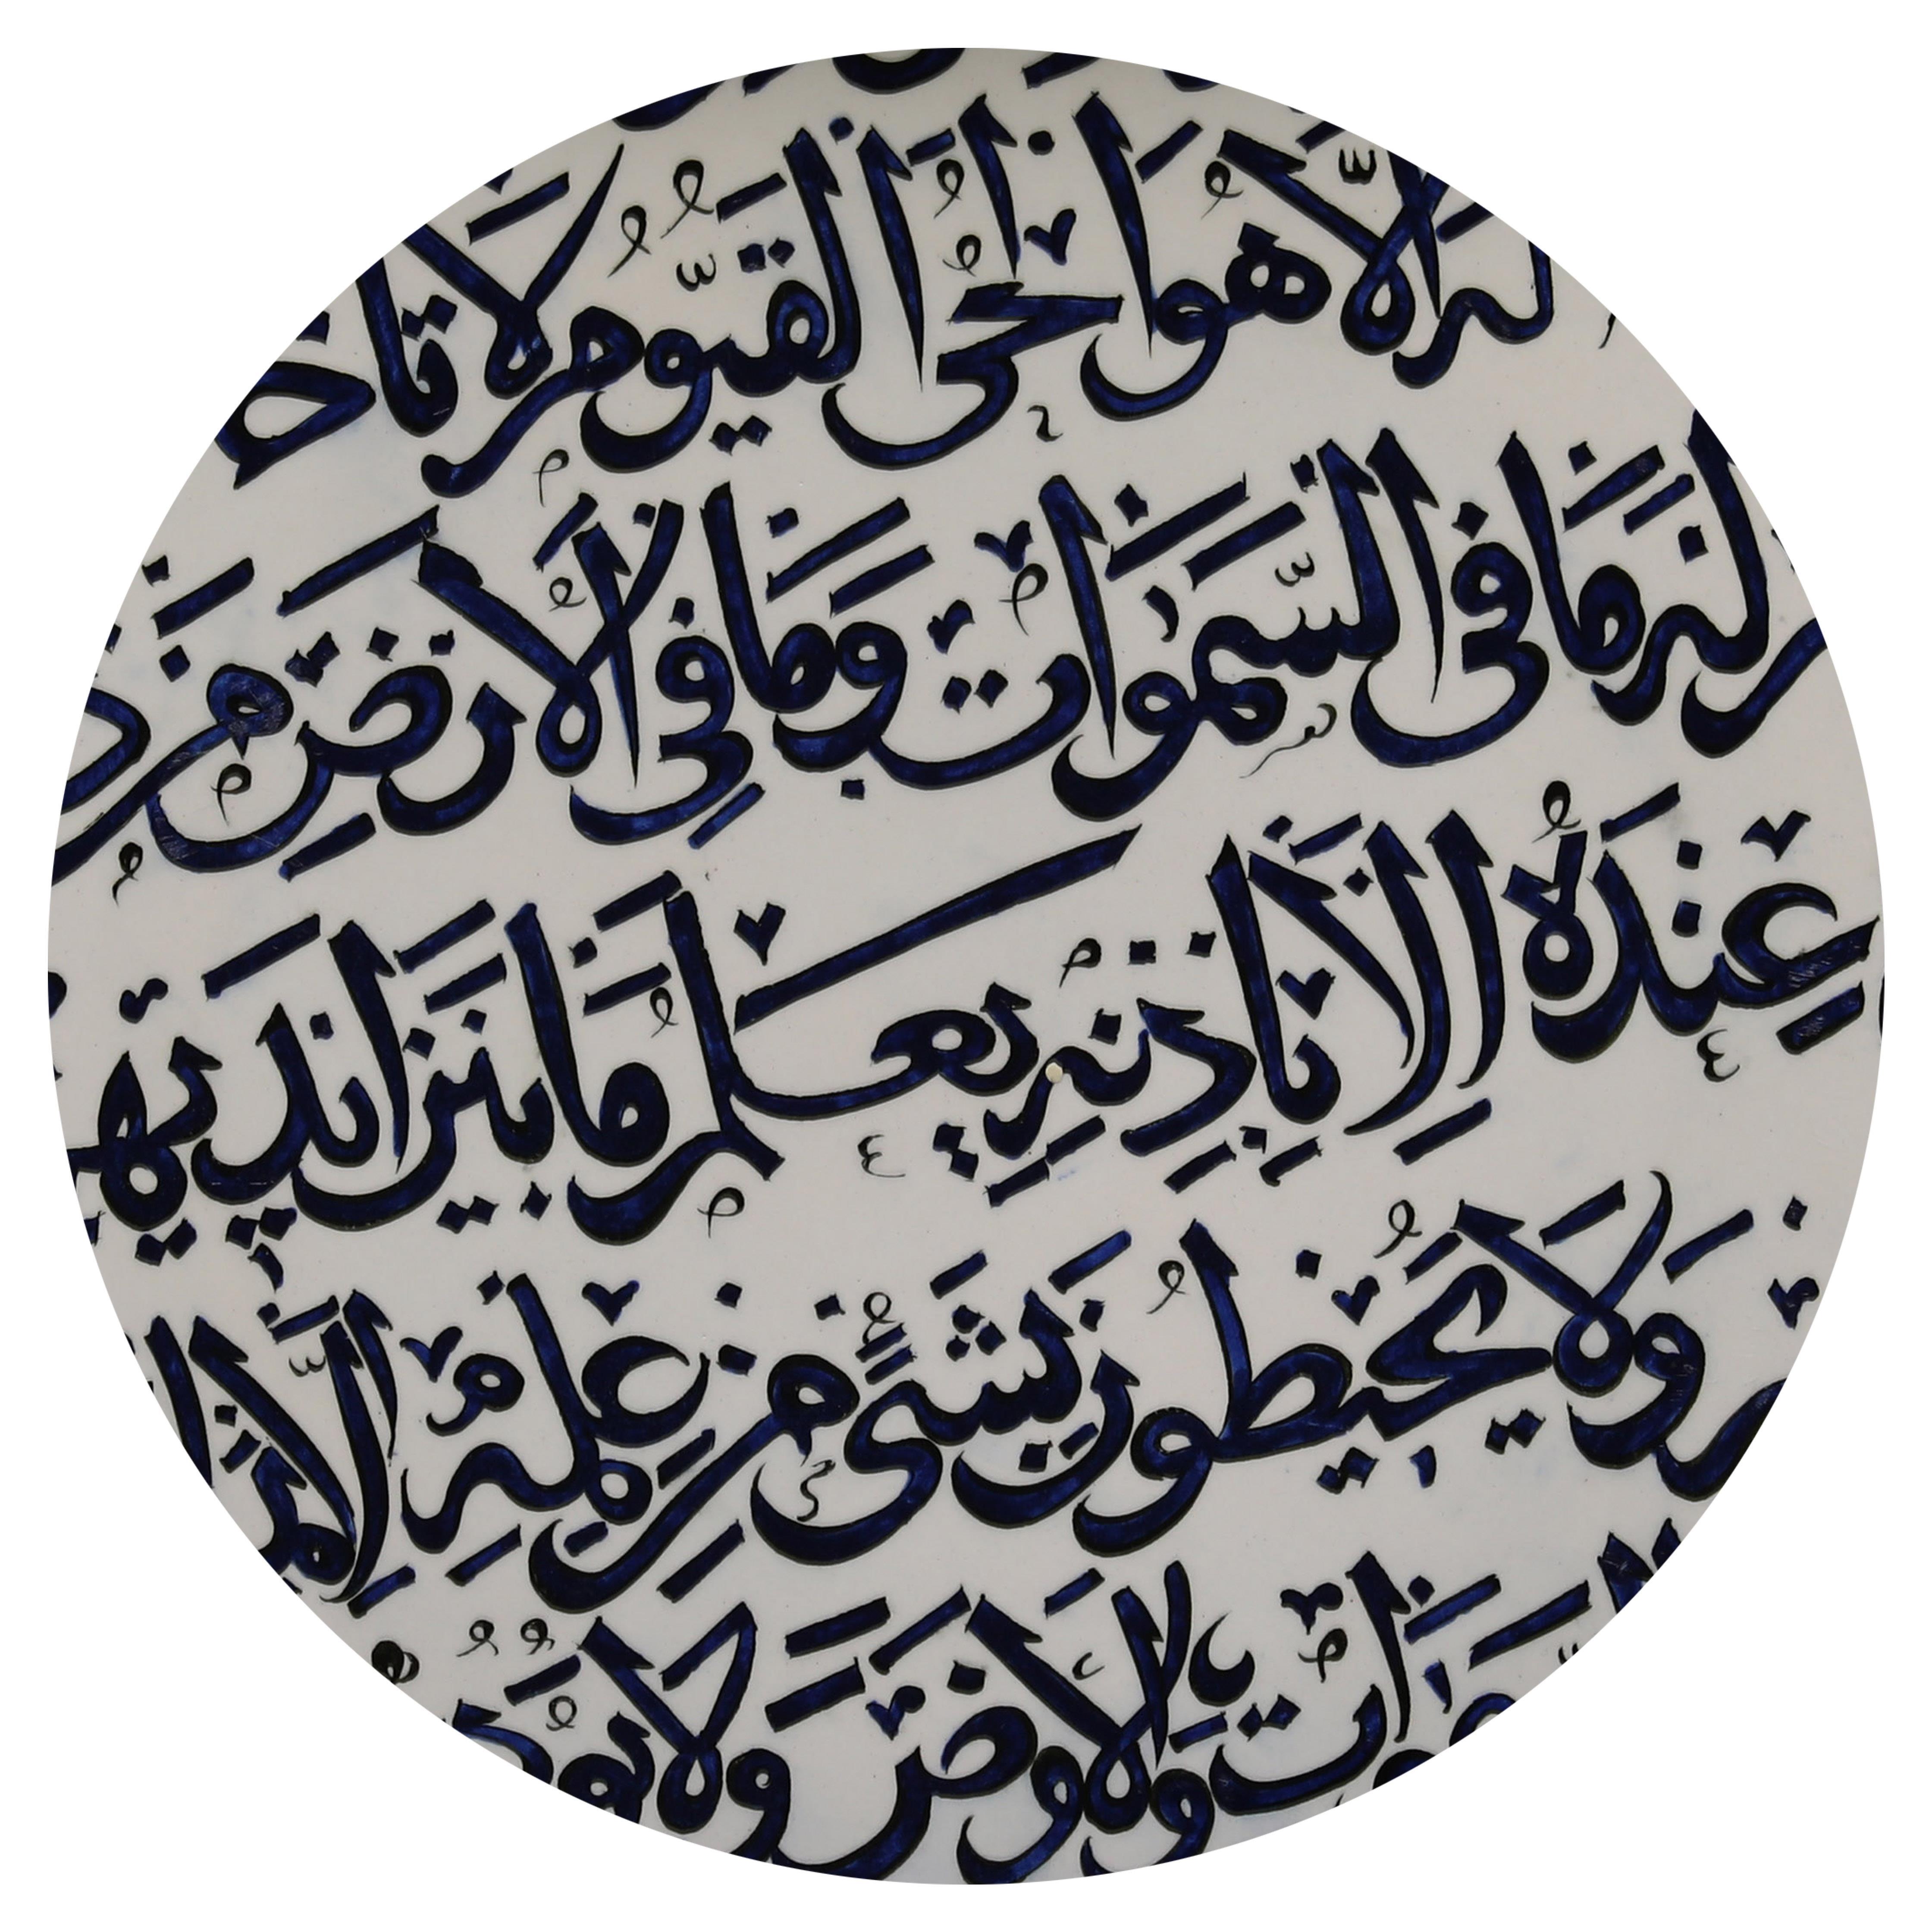 لَا هُوَ الْحَىُّ الْقَيُّومُ لَا تَأْخُ
لَهُ مَا فِى السَّمٰوَاتِ وَمَا فِى الْاَرْضِ مَنْ ذَ
عِنْدَهُ اِلَّا بِاِذْنِهِ يَعْلَمُ مَا بَيْنَ اَيْدِيهِ
وَلَا يُحِيطُونَ بِشَىْءٍ مِنْ عِلْمِهِ اِلَّا بِمَا
وَاتِ وَالْاَرْضَ وَلَا يَؤُ